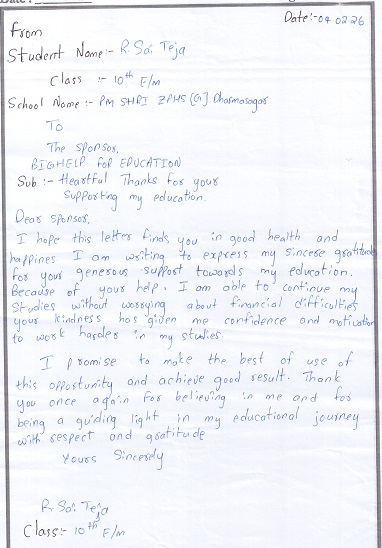 Date:-04 02 26
From
Student Name:- R. Sai Teja
Class :- 10th E/m
School Name :- PM SHRI ZPHS (G) Dharmasagar
To
The sponsor,
BIGHELP FOR EDUCATION
Sub :- Heartful Thanks for your
supporting my education.
Dear sponsor,
I hope this letter finds you in good health and
happines I am writing to express my sincere gratitude
for your generous support towards my education.
Because of your help. I am able to continue my
studies without worrying about financial difficulties
your kindness has given me confidence and motivation
to work harder in my studies.
I promise to make the best of use of
this opportunity and achieve good result. Thank
you once again for believing in me and for
being a guiding light in my educational journey
with respect and gratitude
Yours Sincerely
R. Sai Teja
Class:- 10th E/m